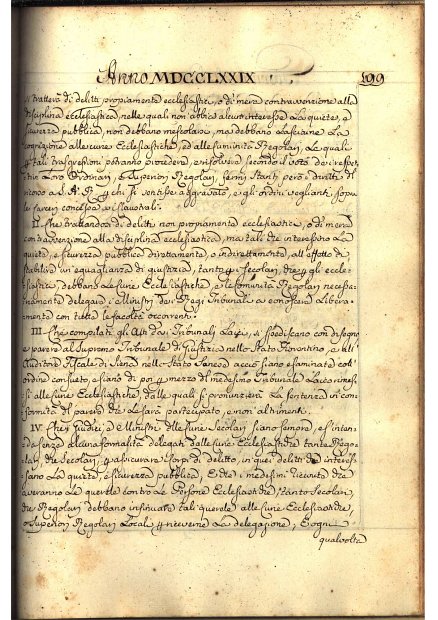 Anno MDCCLXXIX 199
si tratterà di delitti propiamente ecclesiastici, o di mera contravvenzione alla
disciplina ecclesiastica nelle quali non abbia alcun interesse la quiete, e
sicurezza pubblica, non debbano mescolarsi, ma debbano lasciarne la
cognizione alle curie Ecclesiastiche, ed alle Comunità Regolari, le quali
p tali trasgressioni potranno procedere, e risolvere secondo il voto dei rispet-
tivi loro Ordinari, o Superiori Regolari, fermi stanti però i diritti del
ricorso a S. A. R. p chi si sentisse aggravato, e gli ordini veglianti sopra
le carceri concesse ai claustrali.
II. Che trattandosi di delitti non propiamente ecclesiastici, o di mera
contravvenzione alla disciplina ecclesiastica, ma tali che interessino la
quiete, e sicurezza pubblica direttamente, o indirettamente, all'effetto di
stabilire un eguaglianza di giustizia, tanto p i Secolari, che p gli eccle-
siastici, debbano le Curie Ecclesiastiche, e le comunità Regolari necessa-
riamente delegare i Ministri dei Regi Tribunali a conoscere libera-
mente con tutte le facoltà occorrenti.
III. Che compilati gli Atti dai Tribunali Laici, si spediscano con disegno
e parere al Supremo Tribunale di Giustizia nello Stato Fiorentino, e all'
Auditore Fiscale di Siena nello Stato Sanese acciò siano esaminati coll'
ordine consueto, e siano di poi p mezzo del medesimo Tribunale Laico rimes-
si alle Curie Ecclesiastiche, dalle quali si pronunzierà la sentenza in con-
formità del parere che le sarà partecipato, e non altrimenti.
IV. Che i Giudici, e Ministri delle Curie Secolari siano sempre, e s'inten-
da senza alcuna formalità delegati dalle Curie Ecclesiastiche tanto Rego-
lari, che Secolari, p assicurare il corpo di delitto, in quei delitti che interes-
sano la quiete, e sicurezza pubblica, E che i medesimi ricevute che
averanno le querele contro le Persone Ecclesiastiche, tanto Secolari,
che Regolari debbano insinuare tali querele alle Curie Ecclesiastiche,
o Superiori Regolari Locali p ritenerne la delegazione, E ogni
qualvolta